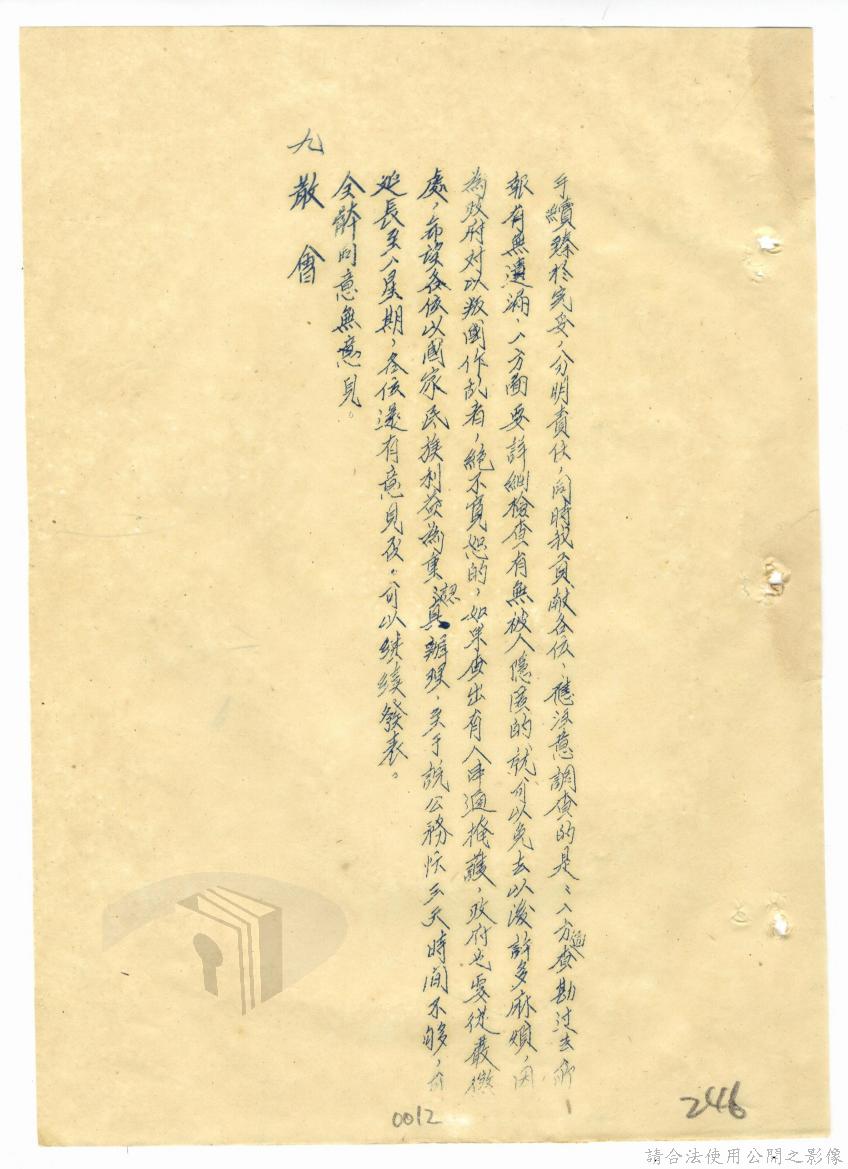 手續臻於完妥，分明責任，同時我貢獻各位，應注意調查的是：一方面查勘过去所
報有無遺漏，一方面要詳細檢查有無被人隱匿的，就可以免去以後許多麻煩，因
為政府对以叛國作乱者，絕不寬恕的，如果查出有人串通掩護，政府也要從嚴懲
處，希望各位以國家民族利益為重，認真辦理，至于說公務忙三天時間不够，可
延長至一星期，各位還有意見否。可以继续發表。
全體同意無意見。
九 散會
0012
246
請合法使用公開之影像